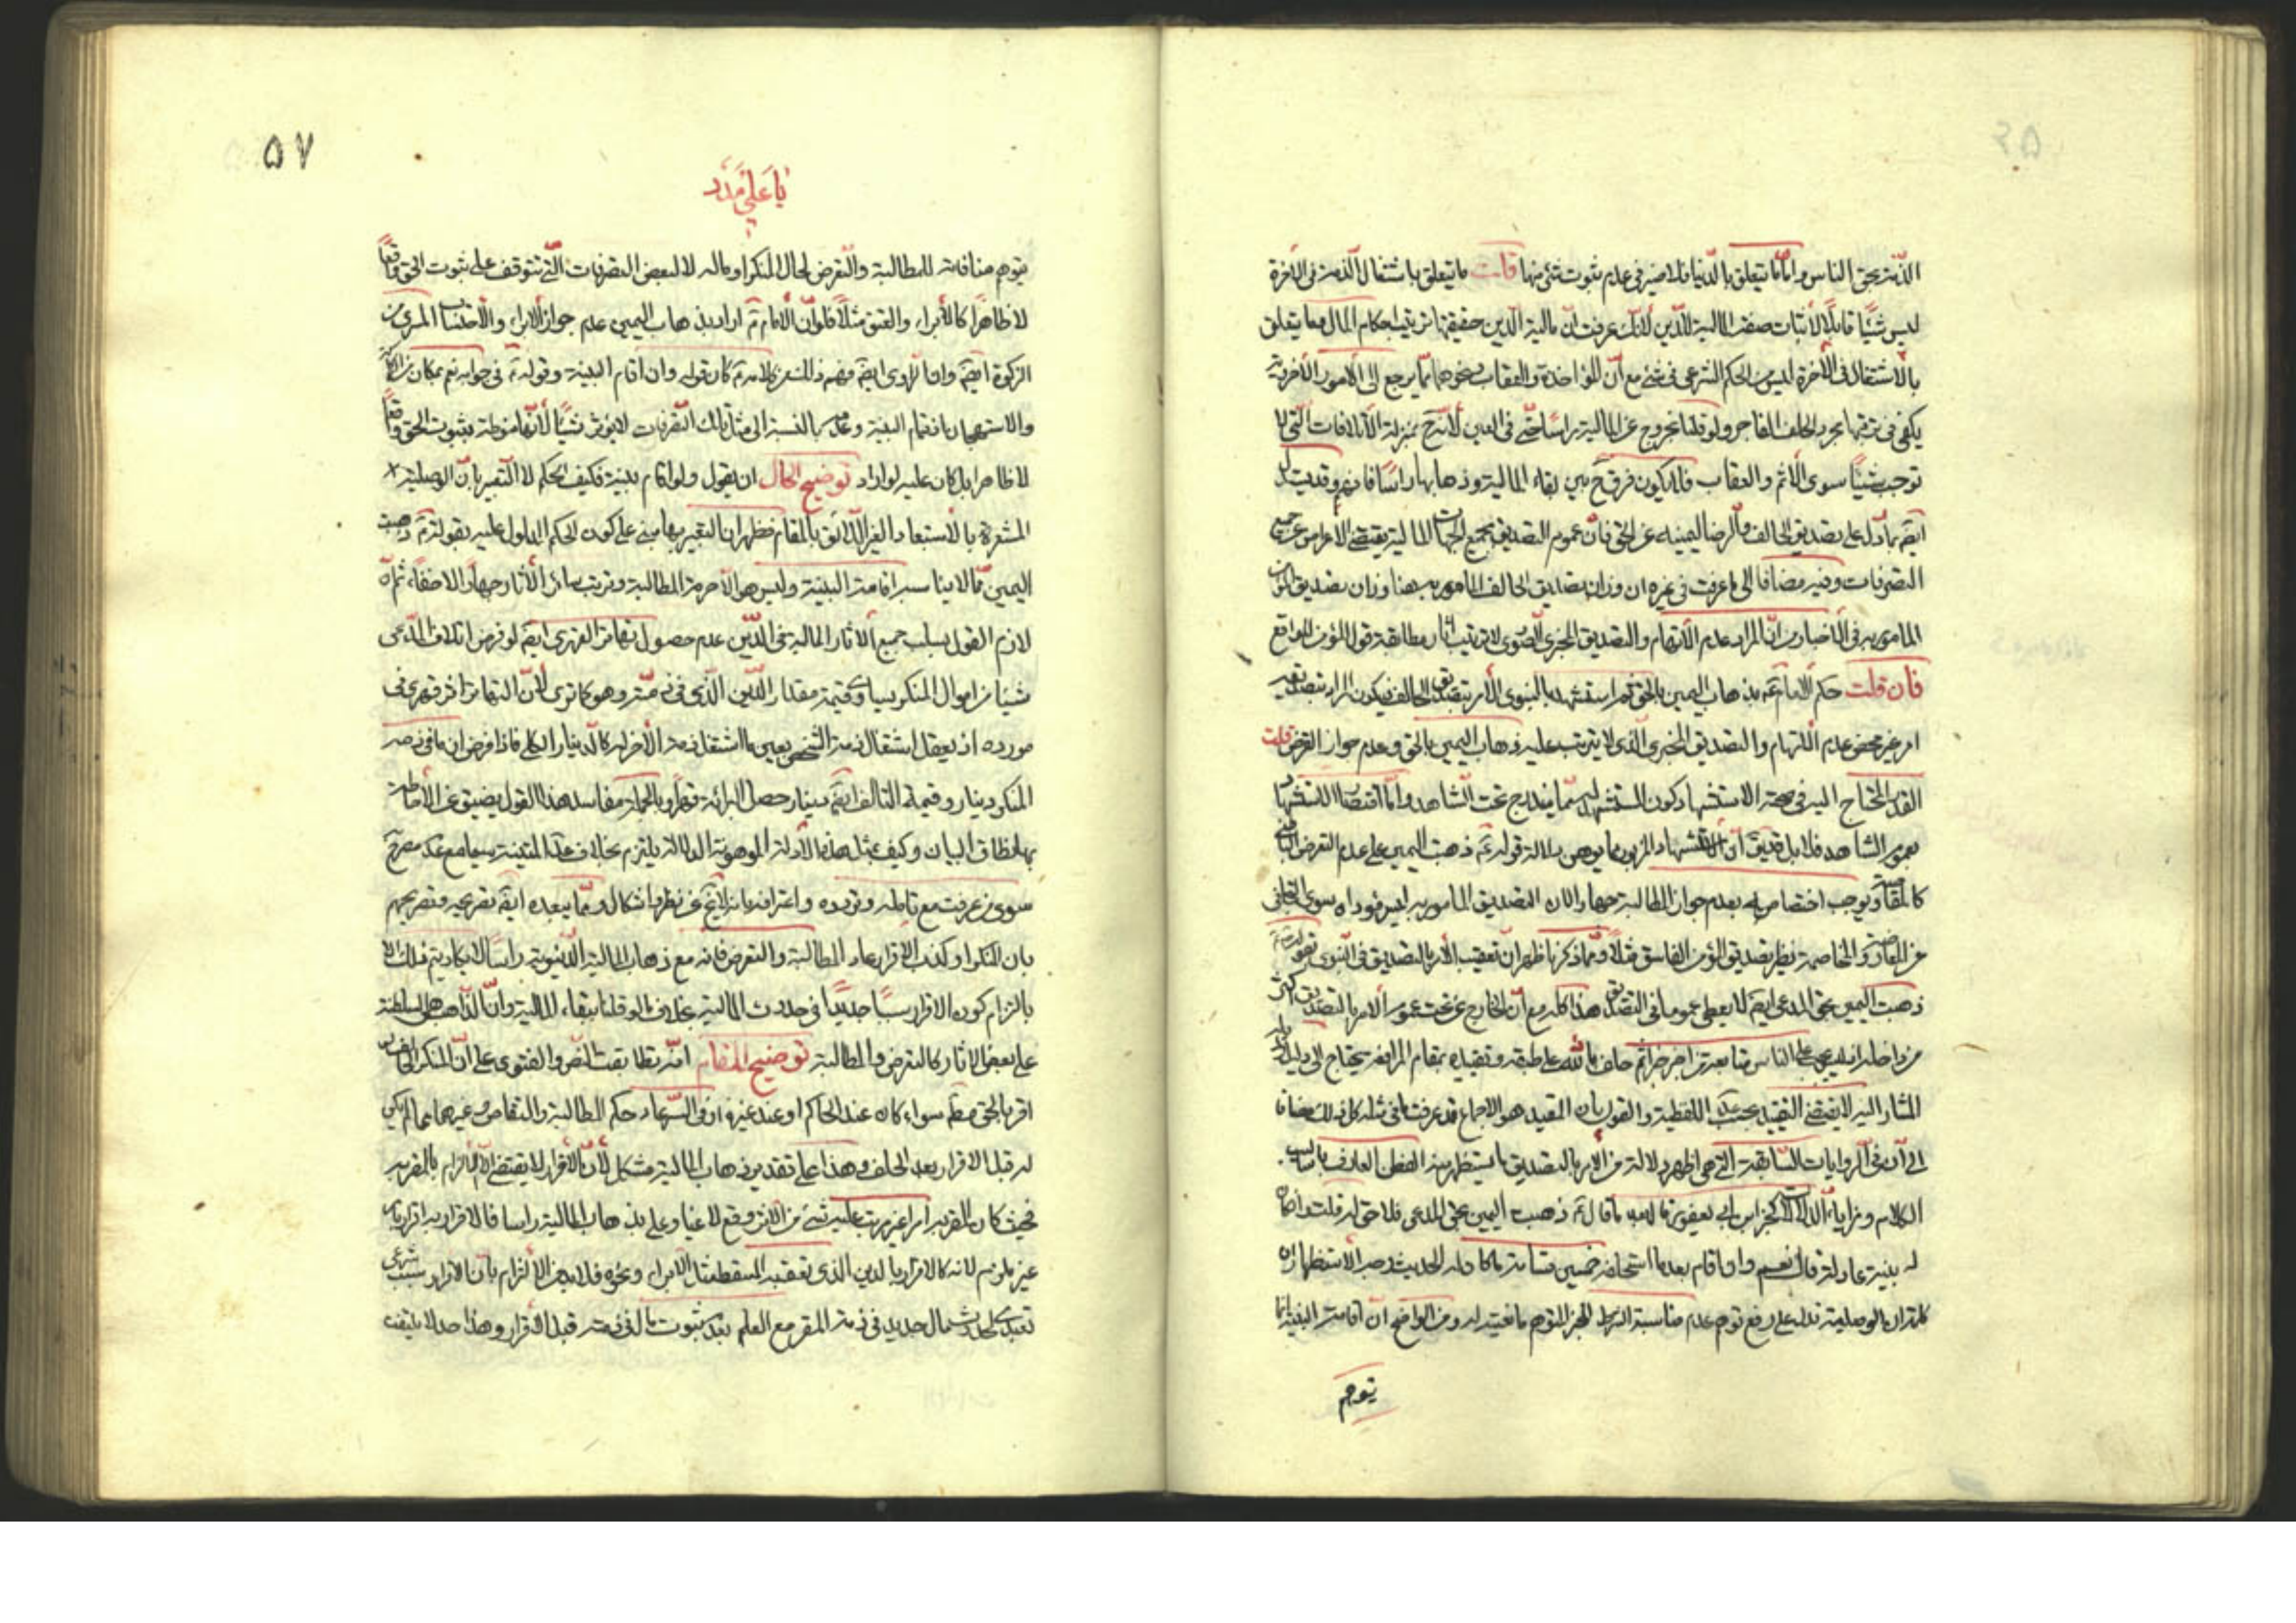 الذمة بحق الناس واما ما يتعلق بالدنيا فلا ضير في عدم ثبوت شئ منها قلت ما يتعلق باشتغال الذمة في الآخرة
ليس شيئا قابلا لاثبات صفة المالية للدين لانك عرفت ان مالية الدين حقيقتها ترتيب احكام المال مما يتعلق
بالاشتغال في الآخرة ليس من الحكم الشرعي في شئ مع ان المؤاخذة والعقاب ونحوهما مما يرجع الى الامور الاخروية
يكفي في ترتبها مجرد الحلف الفاجر ولو قلنا بخروج عن المالية راسا حتى في العين لانه ح بمنزلة الاتلافات التي لا
توجب شيئا سوى الاثم والعقاب فلا يكون فرق ح بين بقاء المالية وذهابها راسا فافهم وقد يستدل
ايضا بما دل على تصديق الحالف والرضا بيمينه عن الحق فان عموم التصديق بجميع الجهات المالية يقتضي الاعراض عن جميع
التصرفات وفيه مضافا الى ما عرفت في غيره ان وزان تصديق الحالف المامور به هنا وزان تصديق المؤمن
المامور به في الاخبار من ان المراد عدم الاتهام والتصديق المخبري الصوري لا ترتيب آثار مطابقة قول المؤمن للواقع
فان قلت حكم الامام ع بذهاب اليمين بالحق ثم استشهد بالنبوي الامر بتصديق الحالف فيكون المراد بتصديقه
امر غير محض عدم الاتهام والتصديق المخبري الذي لا يترتب عليه ذهاب اليمين بالحق وعدم جواز التعرض قلت
القدر المحتاج اليه في صحة الاستشهاد كون المستشهد له مما يندرج تحت الشاهد واما اقتضاء الاستشهاد
بعموم الشاهد فلا بل قد يق ان الاستشهاد المزبور مما يوهن دلالة قوله ع ذهبت اليمين على عدم التعرض
كالمقاصة ويوجب اختصاصه بعدم جواز المطالبة جهارا لان التصديق المامور به ليس مؤداه سوى التجافي
عن المقاصة والمخاصمة نظير تصديق المؤمن الفاسق مثلا ومما ذكرنا ظهر ان تعقيب الامر بالتصديق في النبوي بقوله
ذهبت اليمين بحق المدعي ايضا لا يعطي عموما في التصديق هذا كله مع ان الخارج عن تحت عموم الامر بالتصديق اكثر
من داخله
المشار اليه لا يقتضي التقييد بحسب اللفظية والقول بان المقيد هو الاجماع قد عرفت ما في مثله كل ذلك مضافا
الى ان في الروايات السابقة التي هي اظهر دلالة من الامر بالتصديق ما يستظهر منه الفطن العارف باساليب
الكلام ومزايا الدلالات كخبر ابن ابي يعفور فانه بعد ما قال ع ذهبت اليمين بحق المدعي فلا حق له قلت وان كان
له بينة عادلة قال نعم وان اقام بعد ما استحلفه خمسين قسامة ما كان له الحديث وجه الاستظهار ان
كلمة ان الوصلية تدل على رفع توهم عدم مناسبة الشرط للجزاء لتوهم مانعيته له ومن الواضح ان اقامة البينة انما
يتوهم
۵۷
يا علي مدد
يتوهم منافاته للمطالبة والتعرض لحال المنكر او ماله لا لبعض التصرفات التي تتوقف على ثبوت الحق واقعا
لا ظاهرا كالابراء والعتق مثلا فلو ان الامام ع اراد بذهاب اليمين عدم جواز الابراء والاحتساب من
الزكوة ايضا وان الراوي ايضا فهم ذلك من كلامه ع كان قوله وان اقام البينة وقوله ع في جوابه نعم بمكان من
والاستهجان بانضمام البينة وعدمه بالنسبة الى مثل تلك التصرفات لا يؤثر شيئا لانها منوطة بثبوت الحق واقعا
لا ظاهرا بل كان عليه لو اراد توضيح الحال ان يقول ولو اقام بينة فكيف الحكم لا التعبير بان الوصلية
المشعرة بالاستبعاد الغير اللائق بالمقام فظهر ان التعبير بها مبني على كون الحكم المدلول عليه بقوله ع ذهبت
اليمين مما لا يناسبه اقامة البينة وليس هو الا حرمة المطالبة وترتيب سائر الآثار جهارا لا خفاء ثم ان
لازم القول بسلب جميع الآثار المالية عن الدين عدم حصول تقاص القهري ايضا لو فرض اتلاف المدعي
شيئا من اموال المنكر يساوي قيمته مقدار الدين الذي في ذمته وهو كما ترى لان التقاص اثر قهري في
مورده اذ لا يعقل اشتغال ذمة الشخص بعين ما اشتغل ذمة الآخر له كالدينار الكلي فاذا فرض ان ما في ذمة
المنكر دينار وقيمة التالف ايضا دينار حصل البرائة قهرا وبالجملة مفاسد هذا القول يضيق عن الاحاطة
بها نطاق البيان وكيف بمثل هذه الادلة الموهونة الدلالة يلتزم بخلاف المتقنة سيما مع عدم مصرح
سوى من عرفت مع تامله وتردده واعترافه بانه لا يخ عن نظر واشكال ومما يبعده ايضا تصريحه وتصريحهم
بان المنكر لو كذب الاقرار عاد المطالبة والتعرض فانه مع ذهاب المالية الدنيوية راسا لا يكاد يتم ذلك الا
بالتزام كون الاقرار سببا جديدا في حدوث المالية بخلاف ما لو قلنا ببقاء المالية وان الذاهب هي السلطنة
على بعض الآثار كالتعرض والمطالبة توضيح المقام انه تطابقت النص والفتوى على ان المنكر اذا
اقر بالحق مطلقا سواء كان عند الحاكم او عند غيره او في السر عاد حكم المطالبة والتقاص وغيرهما مما لم يكن
له قبل الاقرار بعد الحلف وهذا على تقدير ذهاب المالية مشكل لان الاقرار لا يقتضي الا الالزام بالمقر به
فحيث كان المقر به امرا غير مترتب عليه شئ من الآثر وقع لاغيا وعلى ذهاب المالية راسا فالاقرار به اقرار بامر
غير ملزم لانه كالاقرار بالدين الذي تعقبه المسقط مثل الابراء ونحوه فلا بد من الالتزام بان الاقرار سبب شرعي
تعبدي لحدوث مال جديد في ذمة المقر مع العلم بعدم ثبوت مال في ذمته قبل الاقرار وهذا